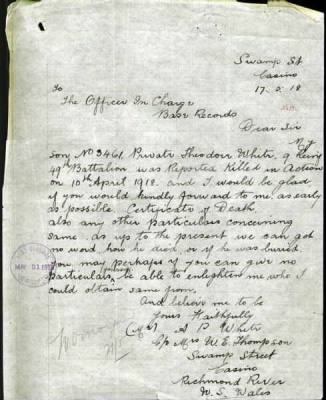 Swamp St
Casino
17.5.18
To
The Officer In Charge
Base Records
Dear Sir
My
son No 3461. Private Theodore White,
49th Battalion was Reported Killed in Action
on 10th April 1918. and I would be glad
if you would kindly forward to me. as early
as possible. Certificate of Death.
also any other particulars concerning
same. as up to the present we can get
no word how he died, or if he was buried.
You may perhaps if you can give no
particulars, be able to enlighten me who I
could obtain same from.
And believe me to be
Yours Faithfully
A P White
c/o Mrs W. E. Thompson
Swamp Street
Casino
Richmond River
N. S. Wales